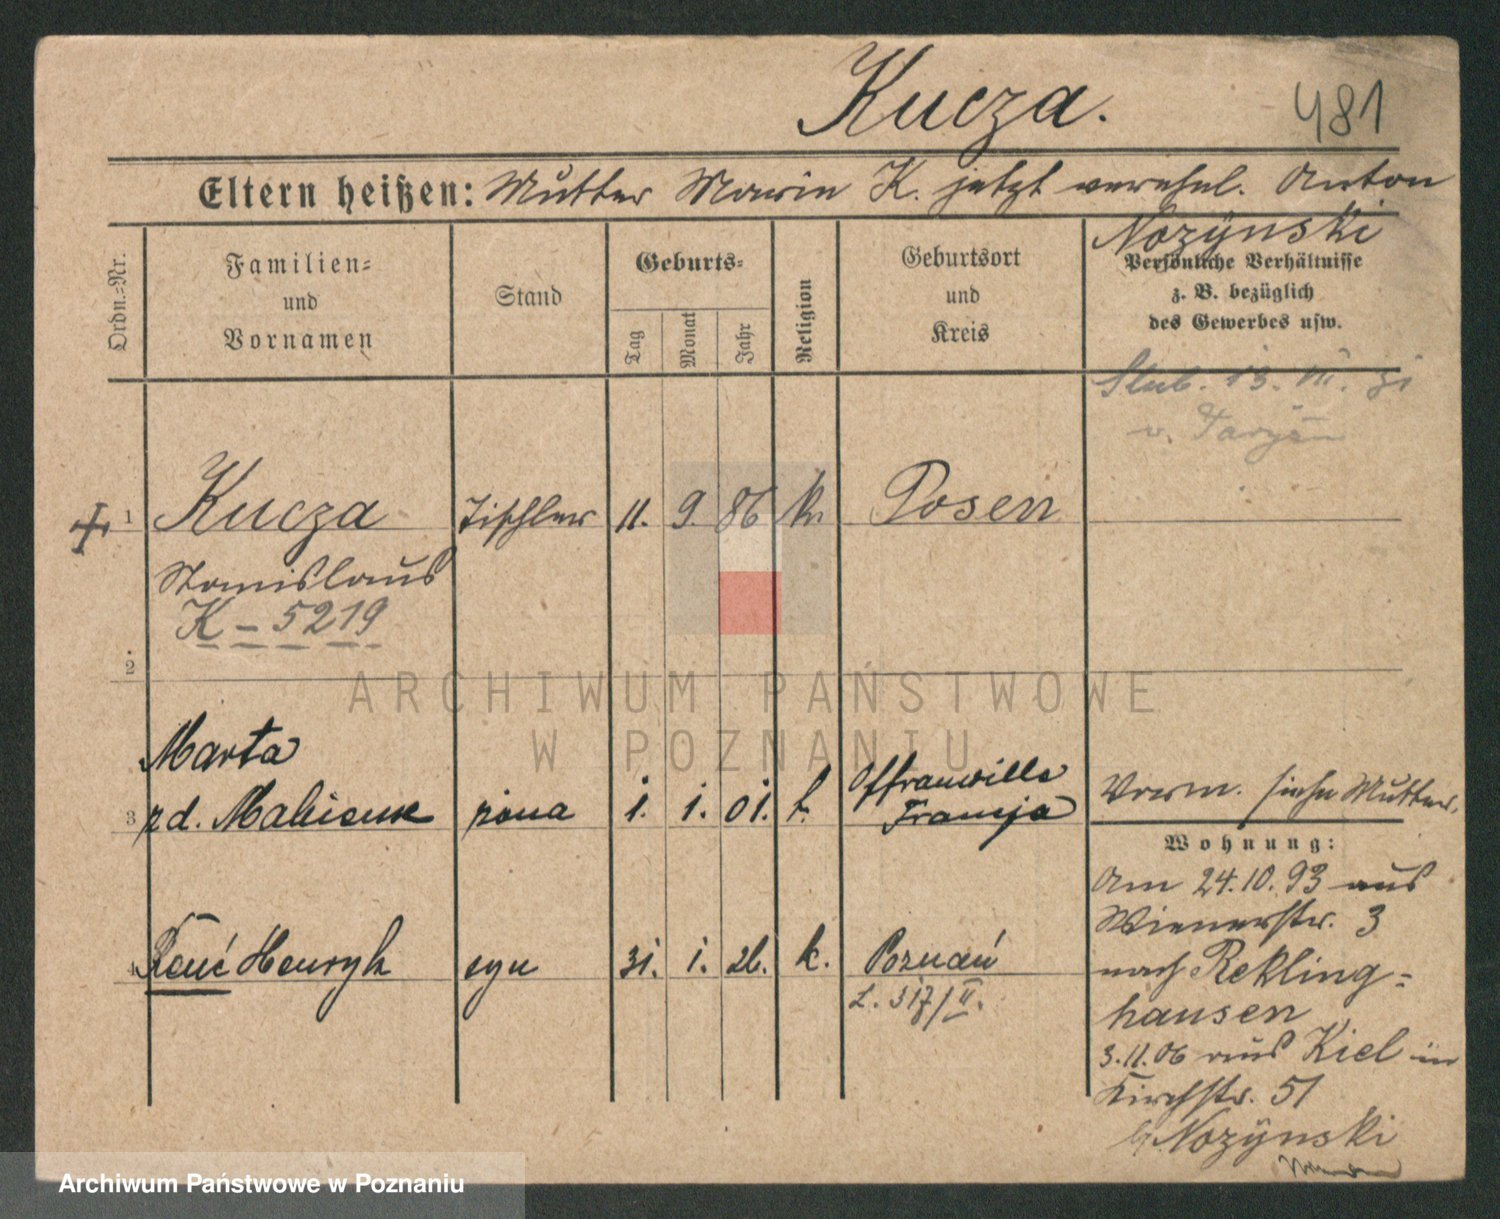 Kucza.
481
Eltern heißen: Mutter Marie K. jetzt verehel. Anton
Nozÿnski
Ordn.=Nr.
Familien=
und
Vornamen
Stand
Geburts=
Tag
Monat
Jahr
Religion
Geburtsort
und
Kreis
Persönliche Verhältnisse
z. B. bezüglich
des Gewerbes usw.
1 Kucza Tischler 11. 9. 86 k. Posen
Stanislaus
K - 5219
2
Marta
3 zd. żona 1. 1. 01. k. Offranville
Francja
Verm. siehe Mutter.
Wohnung:
Am 24.10.93 aus
Wienerstr. 3
nach Rekling=
hausen
3.11.06 aus Kiel in
Kirchstr. 51
b/ Nozÿnski
4 René Henryk syn 31. 1. 26. k. Poznań
L. 317/II.
ARCHIWUM PAŃSTWOWE
W POZNANIU
Archiwum Państwowe w Poznaniu